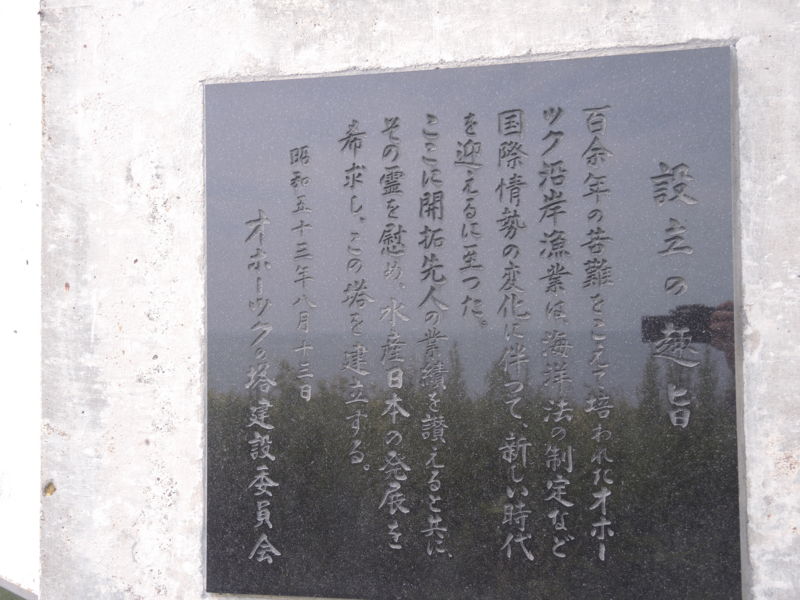 設立の趣旨
百余年の苦難をこえて培われたオホー
ツク沿岸漁業は、海洋法の制定など
国際情勢の変化に伴って、新しい時代
を迎えるに至つた。
ここに開拓先人の業績を讃えると共に、
その霊を慰め、水産日本の発展を
希求し、この塔を建立する。
昭和五十三年八月十三日
オホーツクの塔建設委員会